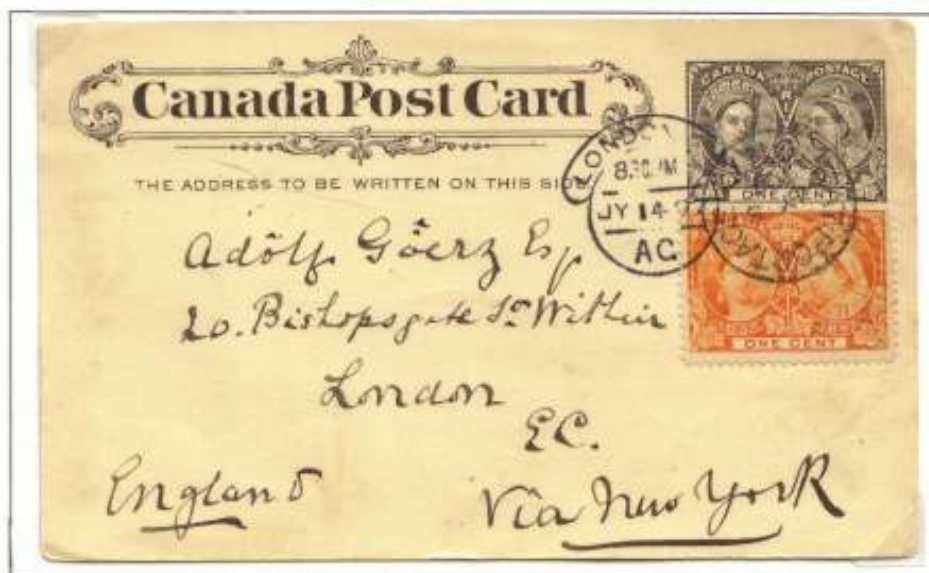 Canada Post Card
THE ADDRESS TO BE WRITTEN ON THIS SIDE
CANADA POSTAGE
ONE CENT
LONDON
8.30 AM
JY 14
AC
Adölf Göerz Esq
20. Bishopsgate St Within
London
E.C.
England
Via New York
ONE CENT